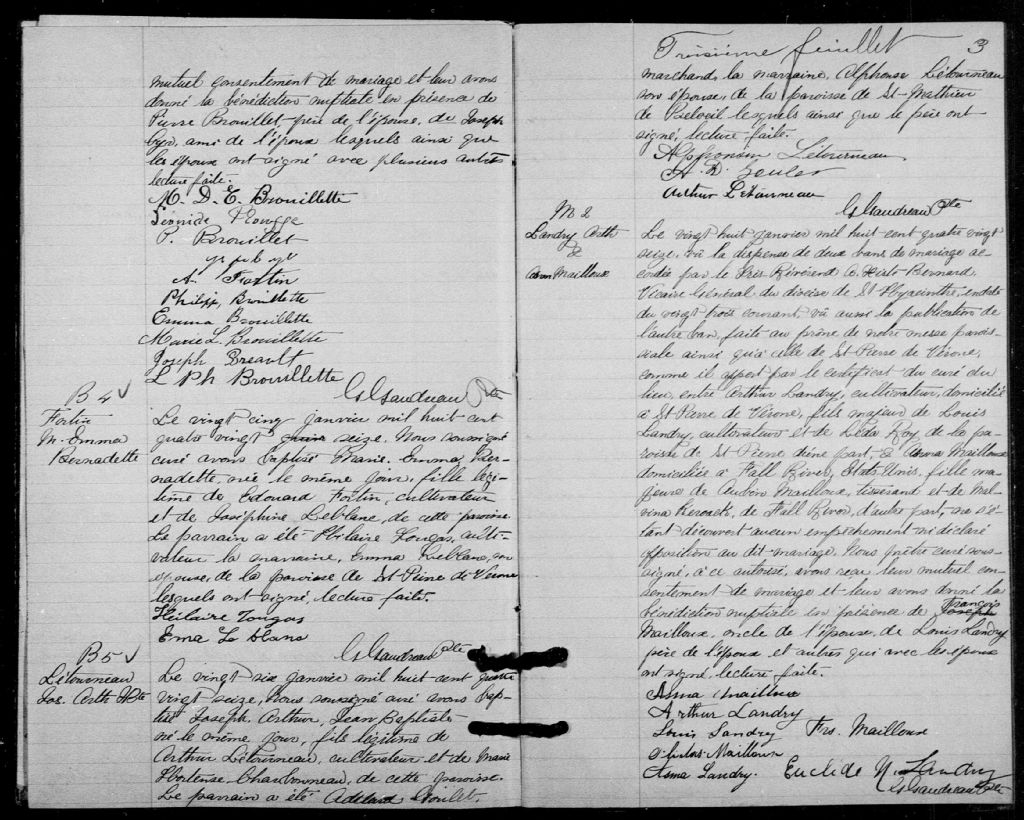 mutuel consentement de mariage et leur avons
donné la bénédiction nuptiale en présence de
Pierre Brouillet père de l'épouse, de Joseph
ami de l'époux lesquels ainsi que
les époux ont signé avec plusieurs autres
lecture faite.
M. D. E. Brouillette
P. Brouillet
A. Fortin
Philippe Brouillette
Emma Brouillette
Marie L. Brouillette
Joseph Breault
L Ph Brouillette
G Gaudreau Ptre
B 4
Fortin
M. Emma
Bernadette
Le vingt cinq janvier mil huit cent
quatre vingt seize. Nous soussigné
curé avons baptisé Marie, Emma, Ber-
nadette, née le même jour, fille légi-
time de Edouard Fortin, cultivateur
et de Joséphine Leblanc, de cette paroisse.
Le parrain a été Hilaire Tougas, culti-
vateur la marraine, Emma Leblanc, son
épouse, de la paroisse de St-Pierre de Vérone
lesquels ont signé, lecture faite.
Hilaire Tougas
Ema Le blanc
G Gaudreau Ptre
B 5
Létourneau
Jos. Arth Bte
Le vingt six janvier mil huit cent quatre
vingt seize, Nous soussigné curé avons bap-
tisé Joseph, Arthur, Jean Baptiste
né le même jour, fils légitime de
Arthur Létourneau, cultivateur et de Marie
Hortense Charbonneau, de cette paroisse.
Le parrain a été Adelard Goulet,
Troisième feuillet 3
marchand, la marraine, Alphonsine Létourneau
son épouse, de la paroisse de St-Mathieu
de Beloeil lesquels ainsi que le père ont
signé, lecture faite.
Alphonsine Létourneau
A. D. Goulet
Arthur Létourneau
G Gaudreau Ptre
M 2
Landry Arth
&
Mailloux
Le vingt huit janvier mil huit cent quatre vingt
seize, vû la dispense de deux bans de mariage ac-
cordée par le Très Révérend
Vicaire Général du diocèse de St Hyacinthe, en date
du vingt trois courant, vû aussi la publication de
l'autre ban, faite au prône de notre messe parois-
siale ainsi qu'à celle de St-Pierre de Vérone,
comme il appert par le certificat du curé du
lieu, entre Arthur Landry, cultivateur, domicilié
à St-Pierre de Vérone, fils majeur de Louis
Landry, cultivateur et de Léda Roy, de la pa-
roisse de St-Pierre d'une part, & Alma Mailloux
domiciliée à Fall River, Etats-Unis, fille ma-
jeure de Mailloux, tisserand et de Mel-
vina Kerouack, de Fall River, d'autre part, ne s'é-
tant découvert aucun empêchement ni déclaré
opposition au dit mariage, Nous prêtre curé sous-
signé, à ce autorisé, avons reçu leur mutuel con-
sentement de mariage et leur avons donné la
bénédiction nuptiale en présence de François
Mailloux, oncle de l'épouse, de Louis Landry
père de l'époux et autres qui avec les époux
ont signé, lecture faite.
Alma Mailloux
Arthur Landry
Louis Landry Frs. Mailloux
Mailloux
Alma Landry. Euclide N. Landry
G Gaudreau Ptre